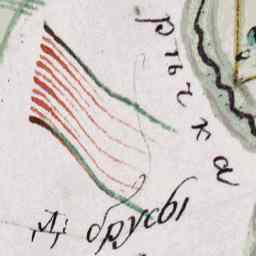 рѣчка
Д: брусы